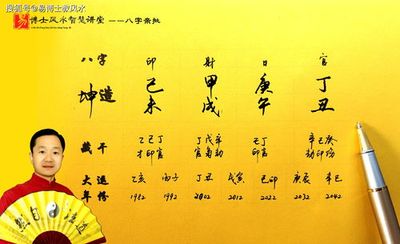 搜狐号@易博士教风水
易 博士风水智慧讲堂 ——八字案批
八字 印 财 日 官
坤造 己未 甲戌 庚午 丁丑
藏干 乙己丁 丁戊辛 己丁 辛己癸
才印官 官枭劫 印官 劫印伤
大运 乙亥 丙子 丁丑 戊寅 己卯 庚辰 辛巳
年份 1982 1992 2002 2012 2022 2032 2042